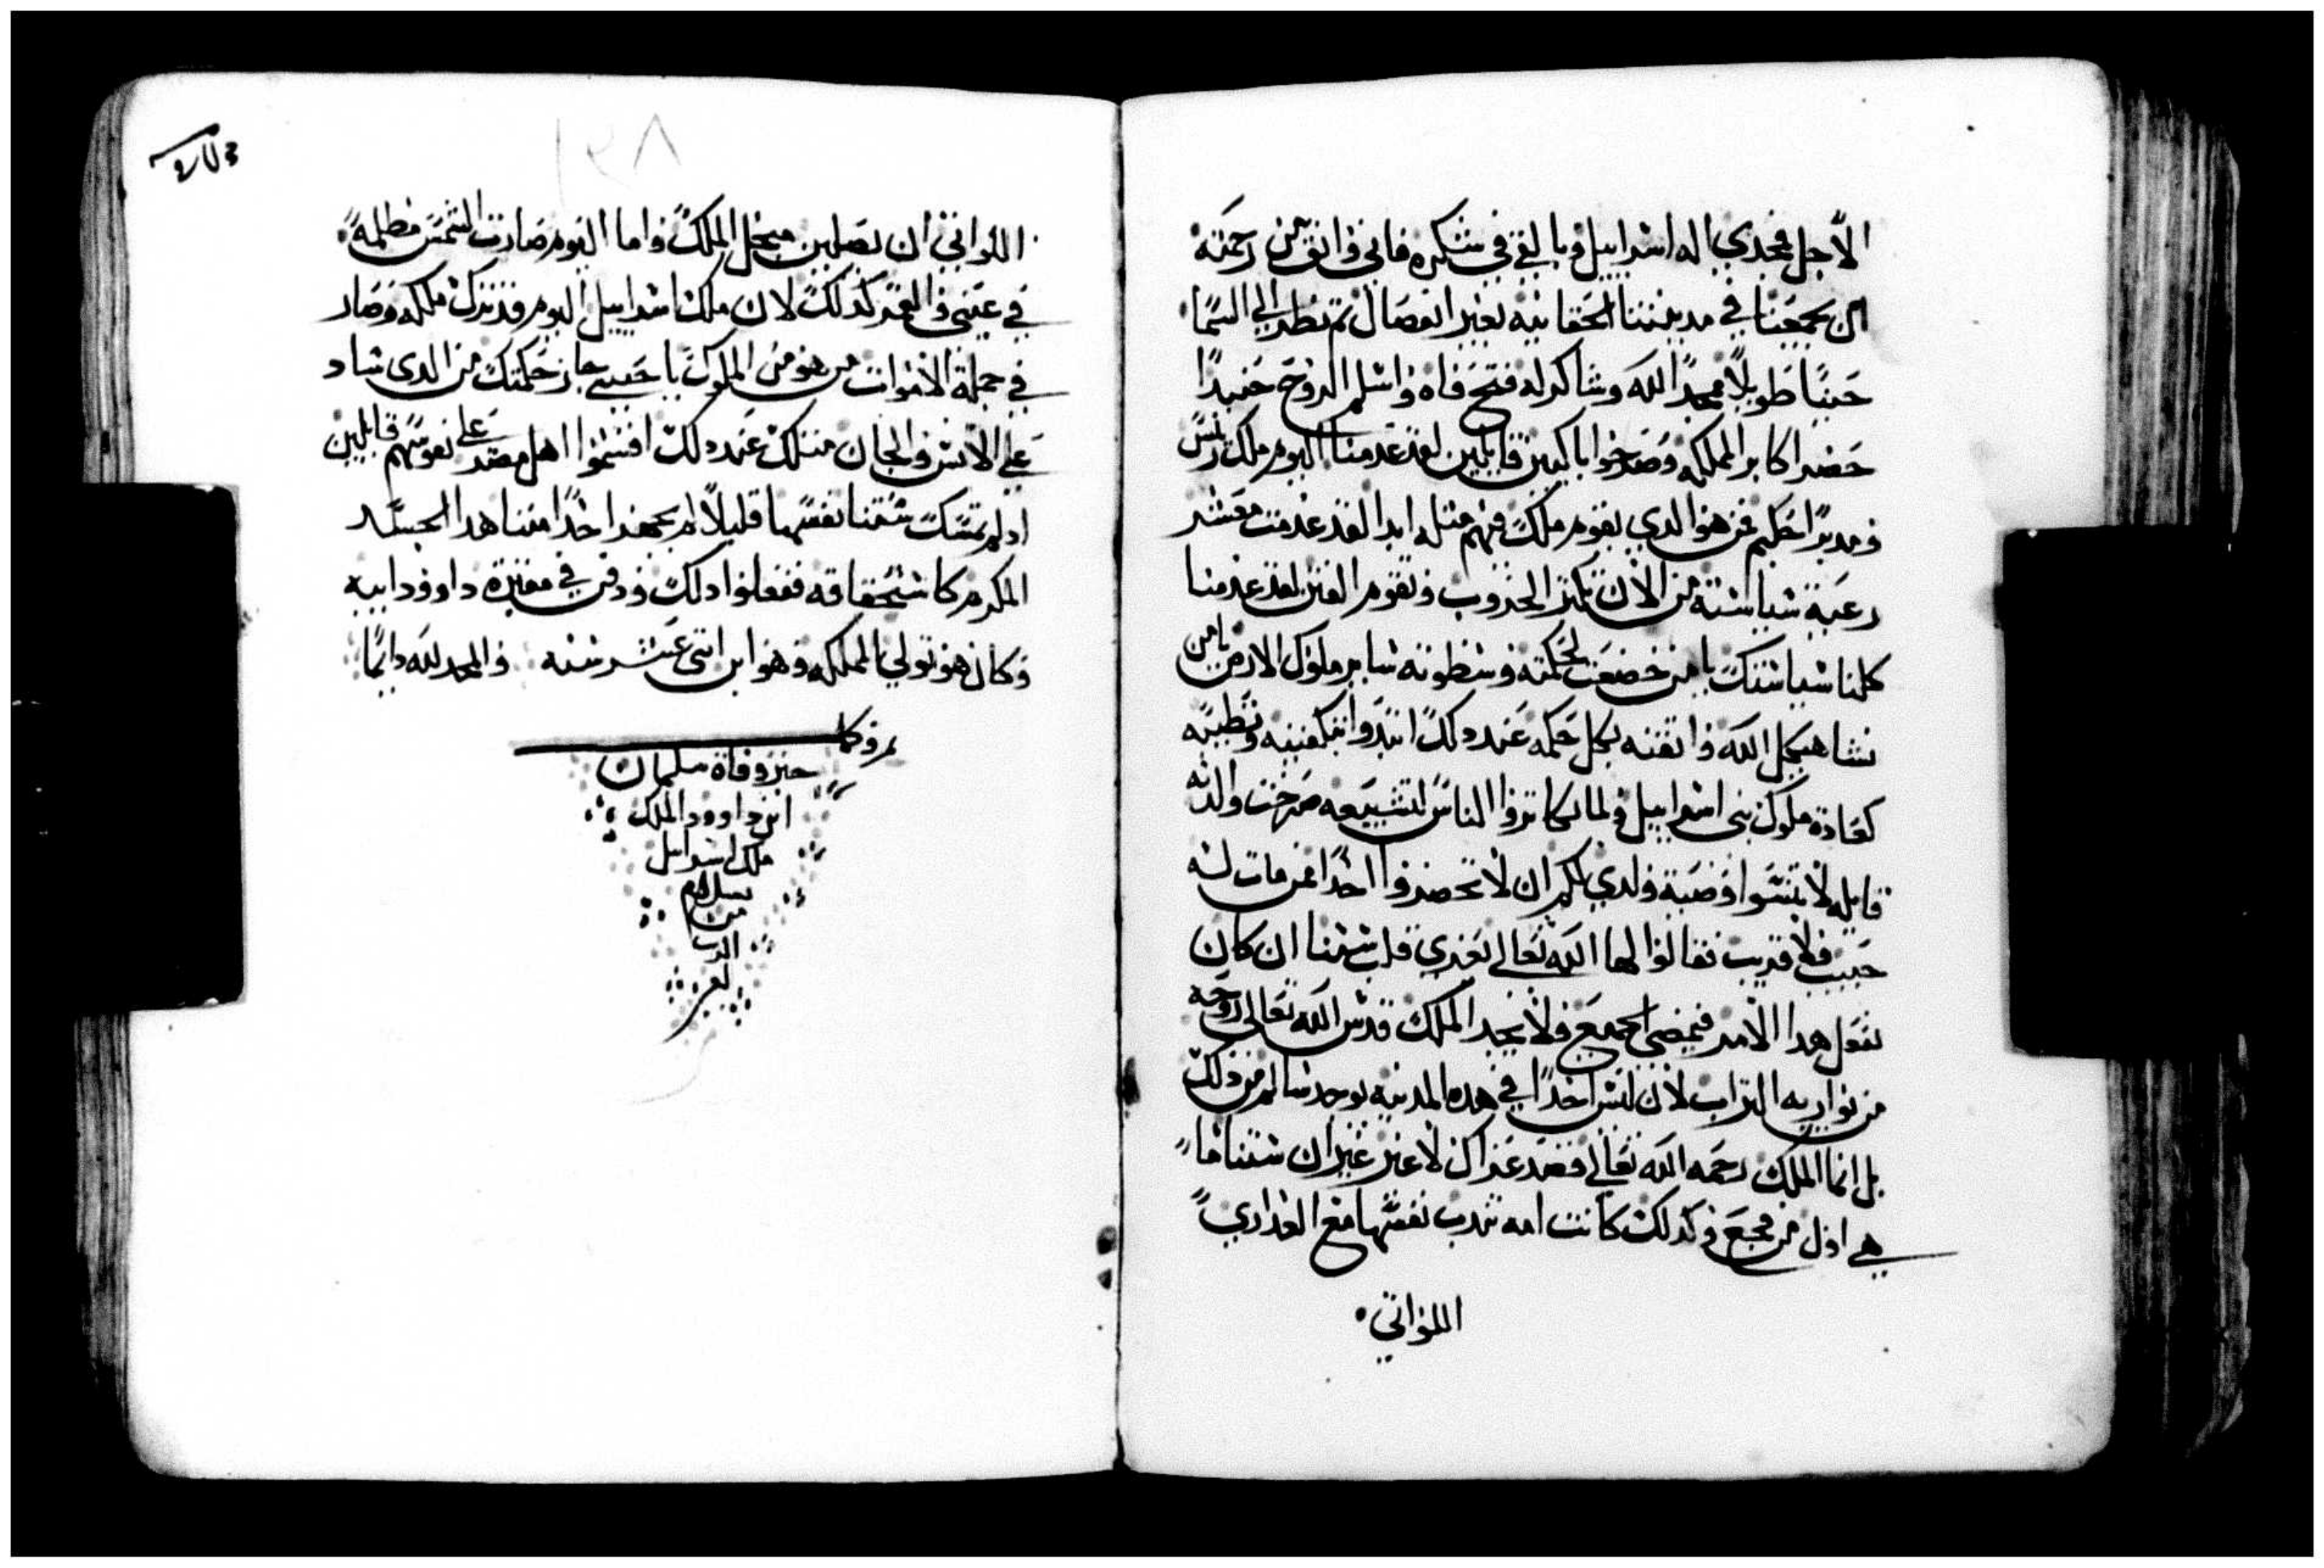 الاجل مجدي اله اسراييل وبالغي في شكره فاني واثق من رحمته
ان يجمعنا في مدينتنا الحقانيه بغير انفصال تم نظر الي السما
حينًا طويلًا ممجدًا الله وشاكر له فتح فاه واسلم الروح حنيدًا
حضر اكابر المملكه وصرخوا باكيين قايلين لقد عدمنا اليوم ملك ريس
ومدبرًا حكيم فمن هو الدي يقوم ملك منهم متله ابدا لقد عدمت معشر
رعية سياسته من الان تكتر الحروب وتقوم الفتن لقد عدمنا
كلنا سياستك يا من خضعت لحكمته وسطوته ساير ملوك الارض يا من
نشا هيكل الله واتقنه بكل حكمه عند دلك ابتدوا بتكفينه وتطيبه
كعادة ملوك بني اسراييل ولما تكاتروا الناس لتشييعه صرخت والدته
قايله لا تنسوا وصية ولدي لكم ان لا تحضروا احدًا ممن مات له
حبيب ولا قريب فقالوا لها الله تعالي يعزي قلب ستنا ان كان
نفعل هدا الامر فيمضي الجميع ولا يجد الملك قدس الله تعالي روحه
من يواريه التراب لان ليس احدًا في هده المدينه يوجد سالم من دلك
بل انما الملك رحمه الله تعالي قصد عزاك لا غير غير ان ستنا ما
هي اول من فجع وكدلك كانت امه تندب نفسها مع العداري
اللواتي
اللواتي ان يصلين مبخل الملك واما اليوم صارت الشمس مظلمة
في عيني والقمر كدلك لان ملك اسراييل اليوم قد ترك ملكه وصار
في جملة الاموات من هو من الملوك يا حبيبي حاز حكمتك من الدي ساد
علي الانس والجان متلك عند دلك اقسموا اهل مصر علي نفوسهم قايلين
اد لم تمسك ستنا نفسها قليلًا لم يجهز احدًا مننا هدا الجسد
المكرم كاستحقاقه ففعلوا دلك ودفن في مقبرة داوود ابيه
وكان هو تولي المملكه وهو ابن اتني عشر سنه والمجد لله دايمًا
خبر وفاة سليمان
ابن داوود الملك
ملك اسراييل
بسلام
من
الرب